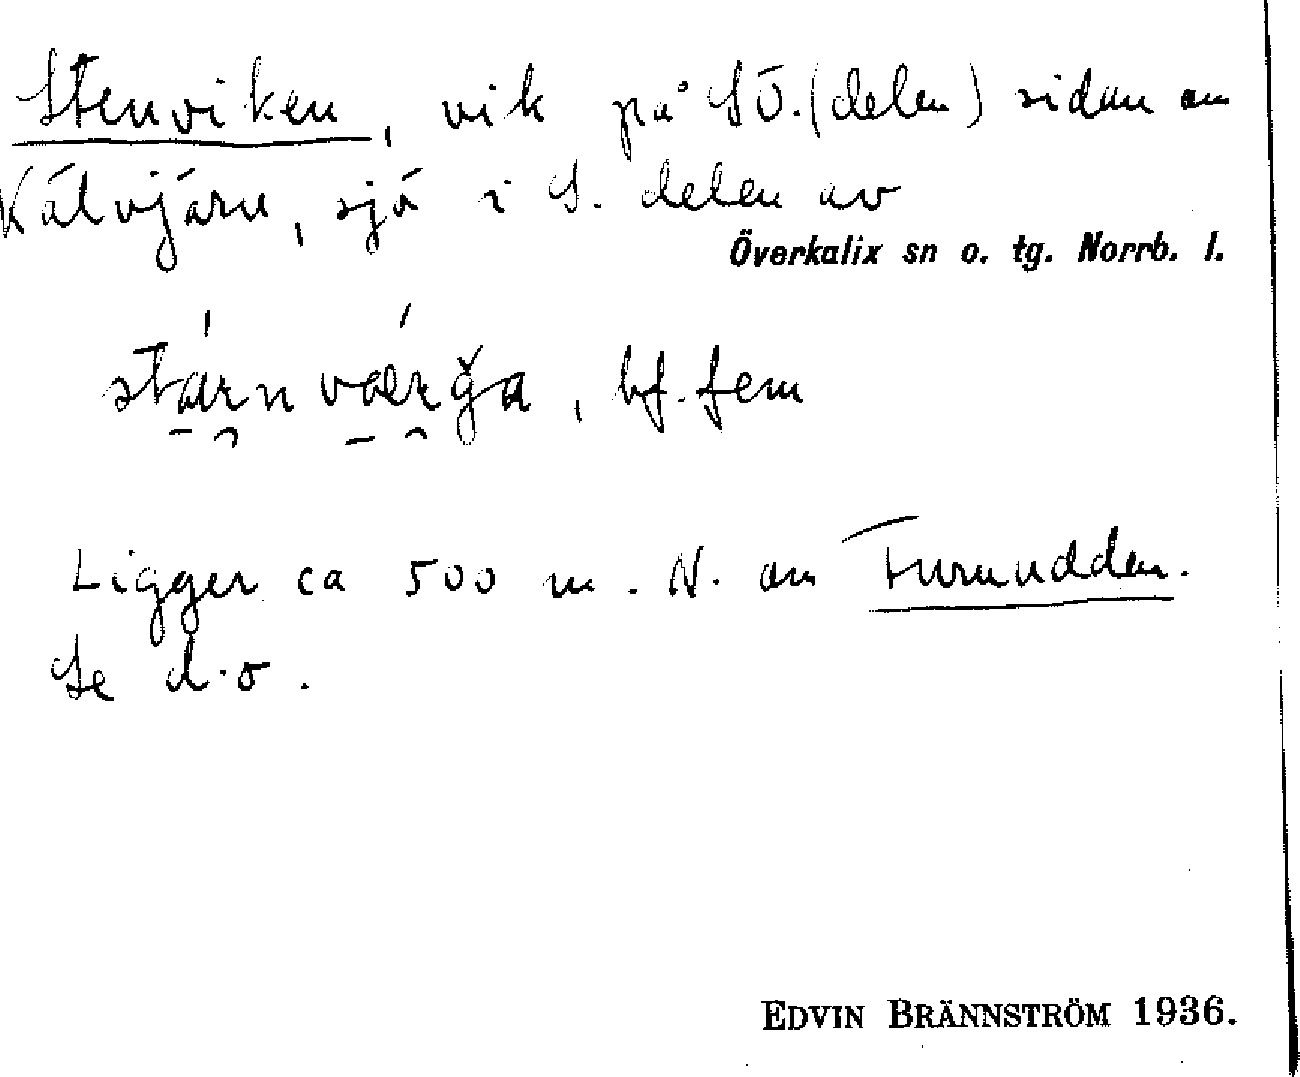 Stenviken, vik på SÖ.(delen) sidan om
Kälvjärn, sjö i S. delen av
Överkalix sn o. tg. Norrb. l.
bf. fem
Ligger ca 500 m. N. om Furuudden.
Se d.o.
EDVIN BRÄNNSTRÖM 1936.